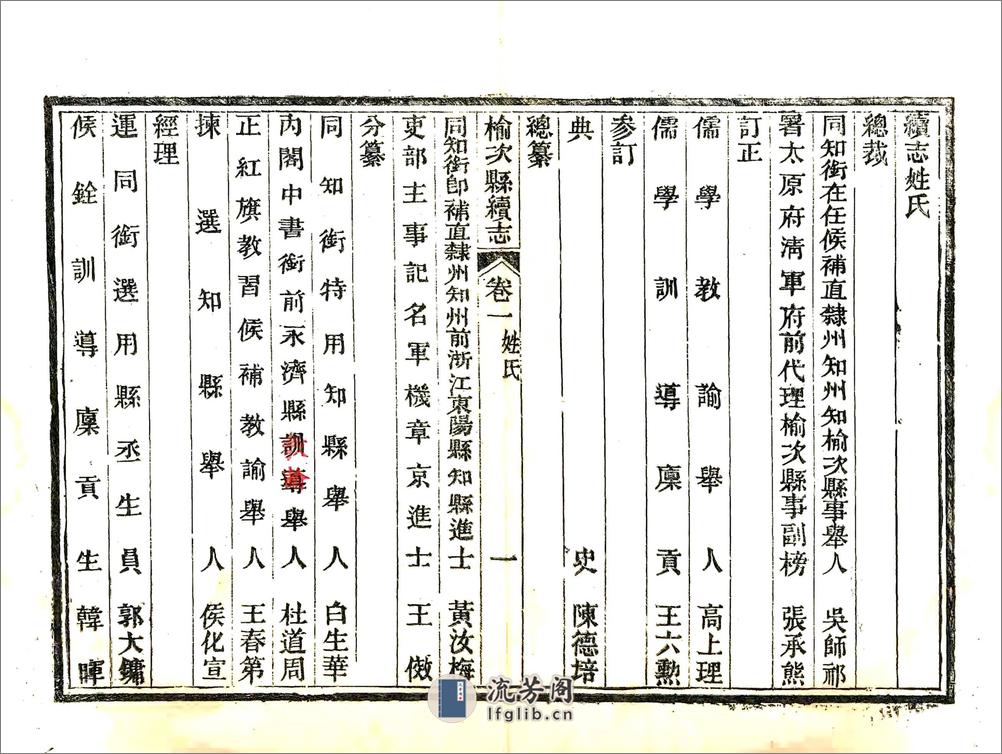 續志姓氏
總裁
同知銜在任候補直隸州知州知榆次縣事舉人 吳師祁
署太原府淸軍府前代理榆次縣事副榜 張承熊
訂正
儒學教諭舉人 高上理
儒學訓導廩貢 王六勳
參訂
典史 陳德培
總纂
榆次縣續志 卷一 姓氏 一
同知銜卽補直隸州知州前浙江東陽縣知縣進士 黃汝梅
吏部主事記名軍機章京進士 王
分纂
同知銜特用知縣舉人 白生華
內閣中書銜前永濟縣訓導舉人 杜道周
教諭
正紅旗教習候補教諭舉人 王春第
揀選知縣舉人 侯化宣
經理
運同銜選用縣丞生員 郭大鏞
候銓訓導廩貢生 韓暉
流芳阁
lfglib.cn